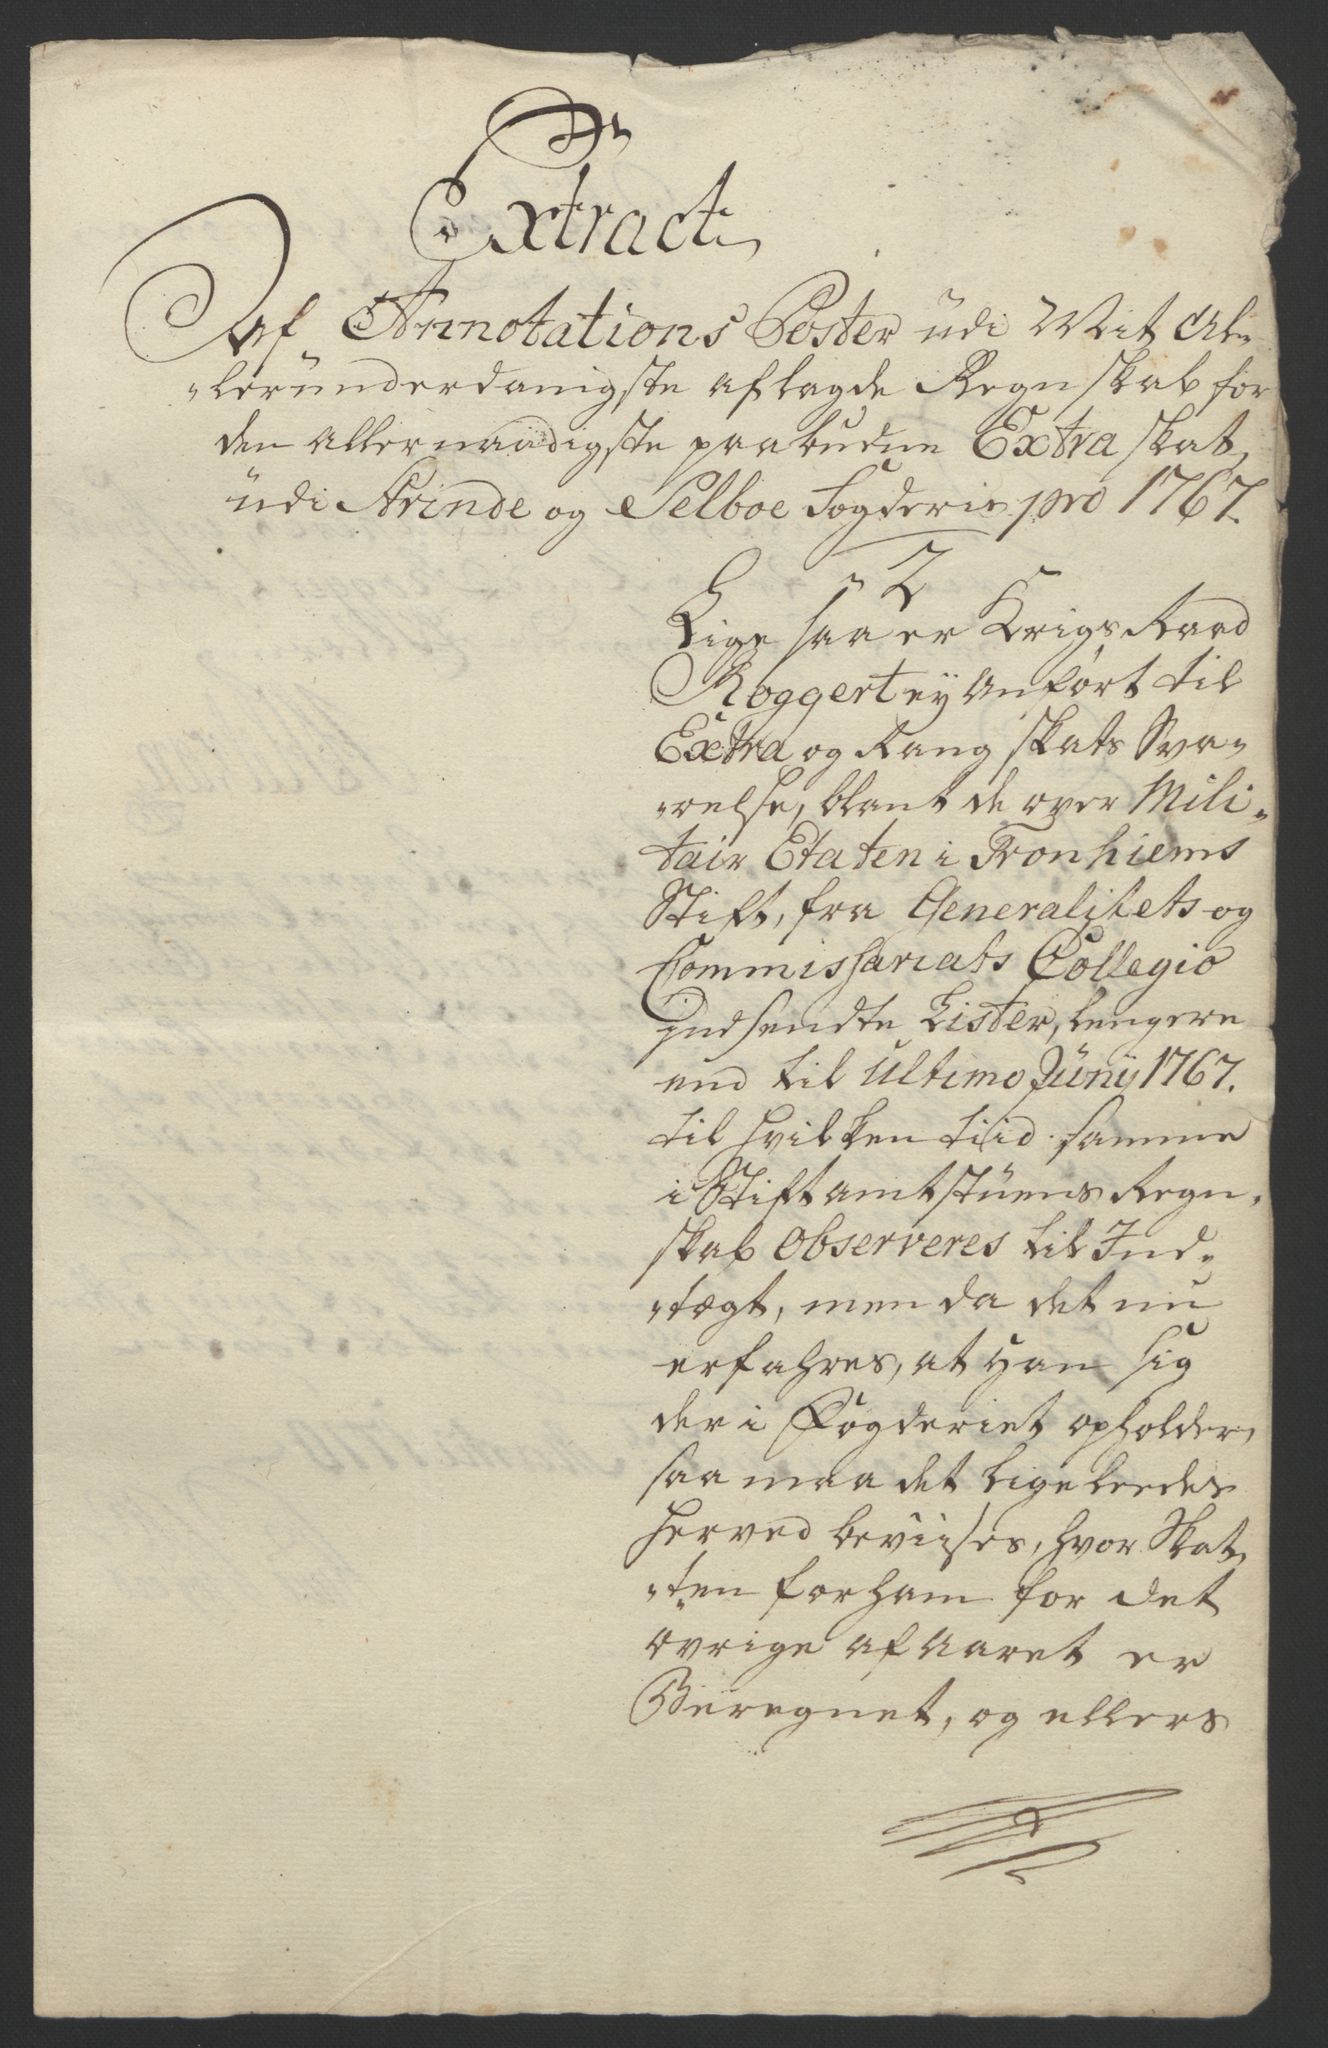 Extract
Af Annotations Poster udi Mit Al-
leründerdanigste aflagde Regnskab for
den allernaadigste paabudne Extra skat,
üdi Strinde og Selboe Fogderie pro 1767.
2
Lige saa er Krigs Raad
Roggert ey anført til
Extra og Rang skats Sva-
relse, blant de over Mili-
tair Etaten i Tronhiems
Stift, fra Generalitets og
Commissariats Collegio
indsendte Lister, lengere
end til ultimo Juny 1767.
til hvilken tiid samme
i Stiftamtstüens Regn-
skab observeres til Ind-
tægt, men da det nu
erfahres, at han sig
der i Fogderiet opholder,
saa maa det ligeledes
herved beviises, hvor Skat-
ten for ham for det
øvrige af Aaret er
Beregnet, og ellers